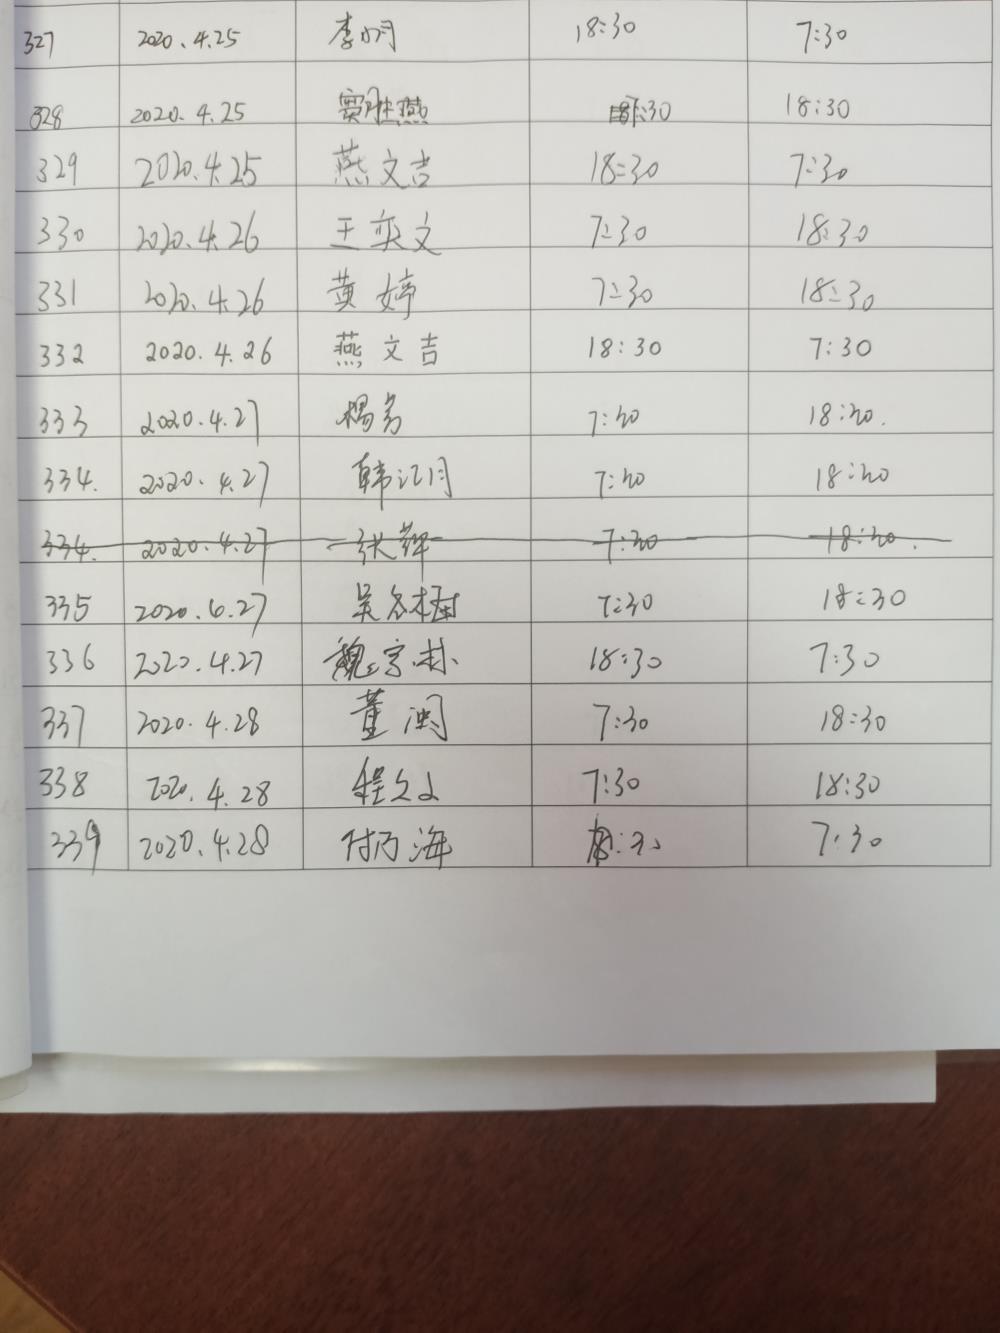 327 2020.4.25 李明 18:30 7:30
328 2020.4.25 窦胜燕 :30 18:30
329 2020.4.25 燕文吉 18:30 7:30
330 2020.4.26 王奕文 7:30 18:30
331 2020.4.26 黄婷 7:30 18:30
332 2020.4.26 燕文吉 18:30 7:30
333 2020.4.27 杨芳 7:30 18:30.
334. 2020.4.27 韩江月 7:30 18:30
334. 2020.4.27 张辉 7:30 18:30.
335 2020.4.27 吴 7:30 18:30
336 2020.4.27 魏 18:30 7:30
337 2020.4.28 董闽 7:30 18:30
338 2020.4.28 程 7:30 18:30
339 2020.4.28 付乃海 7:30